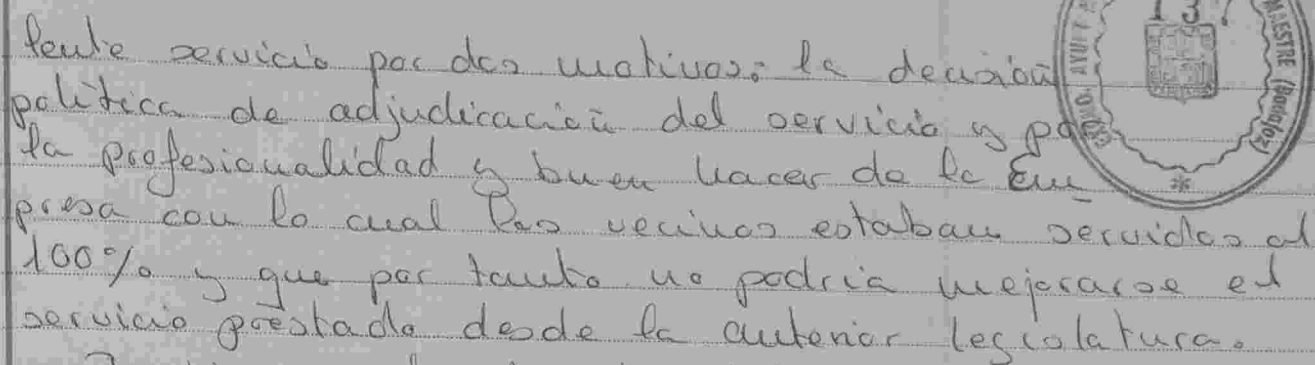 lente servicio por dos motivos: la decisión
política de adjudicación del servicio y por
la profesionalidad y buen hacer de la Em_
presa con lo cual los vecinos estaban servidos al
100% y que por tanto no podría mejorarse el
servicio prestado desde la anterior legislatura.
MAESTRE (Badajoz)